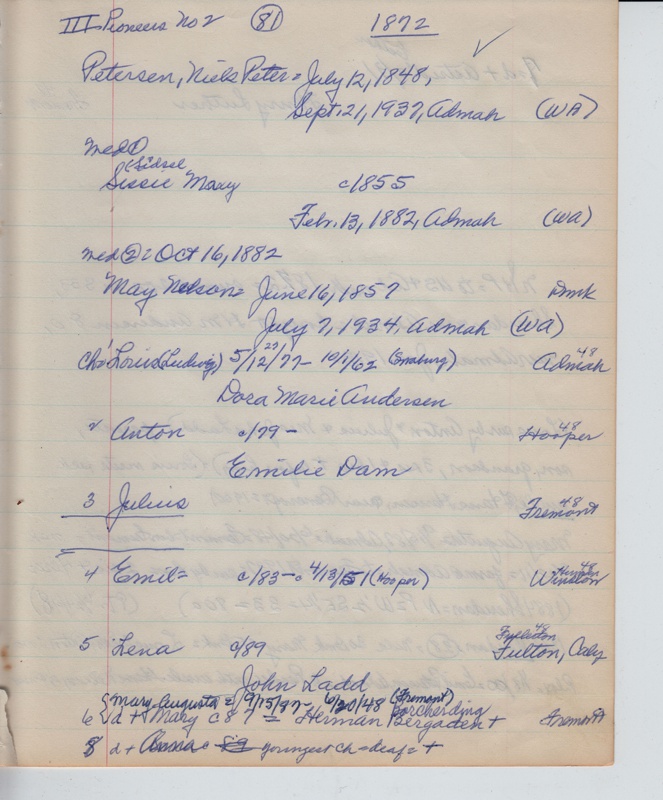 III Pioneers No 2 81 1872
Petersen, Niels Peter = July 12, 1848,
Sept. 21, 1937, Admah (WA)
Med ①
(Sidsel
Sissie Mary c/1855
Febr. 13, 1882, Admah (WA)
Med ② = Oct 16, 1882
May Nelson = June 16, 1857 Dmk
July 7, 1934, Admah (WA)
Ch 1 Louis (Ludwig) 5/12/77 - 10/1/62 (Emaburg) Admah 48
Dora Marie Andersen
2 Anton c/79 - Hooper 48
Emilie Dam
3 Julius Fremont 48
4 Emil = c/83 - 4/13/51 (Hooper) Winston 48
5 Lena c/89 48
Fulton, Caly
John Ladd
Mary Augusta = 9/15/87 - 6/20/48 (Fremont)
Borcherding
6 d + Mary c 87 = Herman Bergadent + Fremont
8 d + c 89 youngest ch = deaf = +